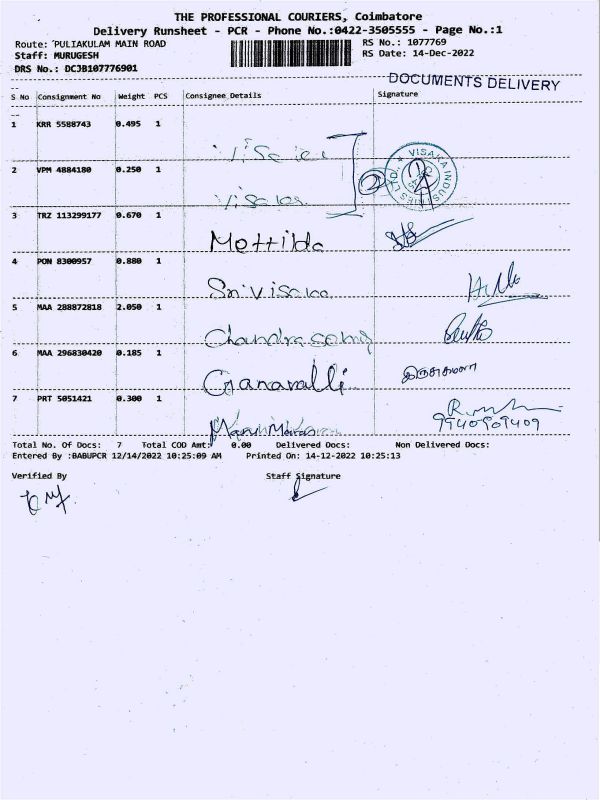 THE PROFESSIONAL COURIERS, Coimbatore
Delivery Runsheet - PCR - Phone No.:0422-3505555 - Page No.:1
Route: PULIAKULAM MAIN ROAD
RS No.: 1077769
Staff: MURUGESH
RS Date: 14-Dec-2022
DRS No.: DCJB107776901
DOCUMENTS DELIVERY
S No Consignment No Weight PCS Consignee Details Signature
1 KRR 5588743 0.495 1
2 VPM 4884180 0.250 1
VISAKA INDUSTRIES LTD.
3 TRZ 113299177 0.670 1 Mettilda
4 PON 8300957 0.880 1 Sri Visaka
5 MAA 288872818 2.050 1
6 MAA 296830420 0.185 1 Ganavalli
7 PRT 5051421 0.300 1
9940909409
Total No. Of Docs: 7 Total COD Amt: 0.00 Delivered Docs: Non Delivered Docs:
Entered By :BABUPCR 12/14/2022 10:25:09 AM Printed On: 14-12-2022 10:25:13
Verified By Staff Signature